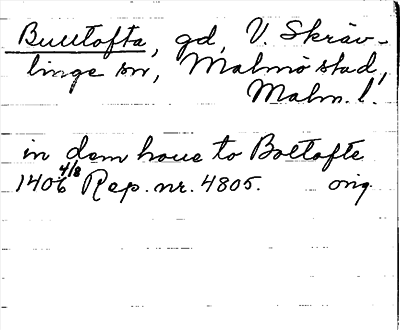 Bulltofta, gd, V. Skräv-
linge sn, Malmö stad,
Malm. l.
in dem houe to Boltofte
1406 4/8 Rep. nr. 4805. orig.